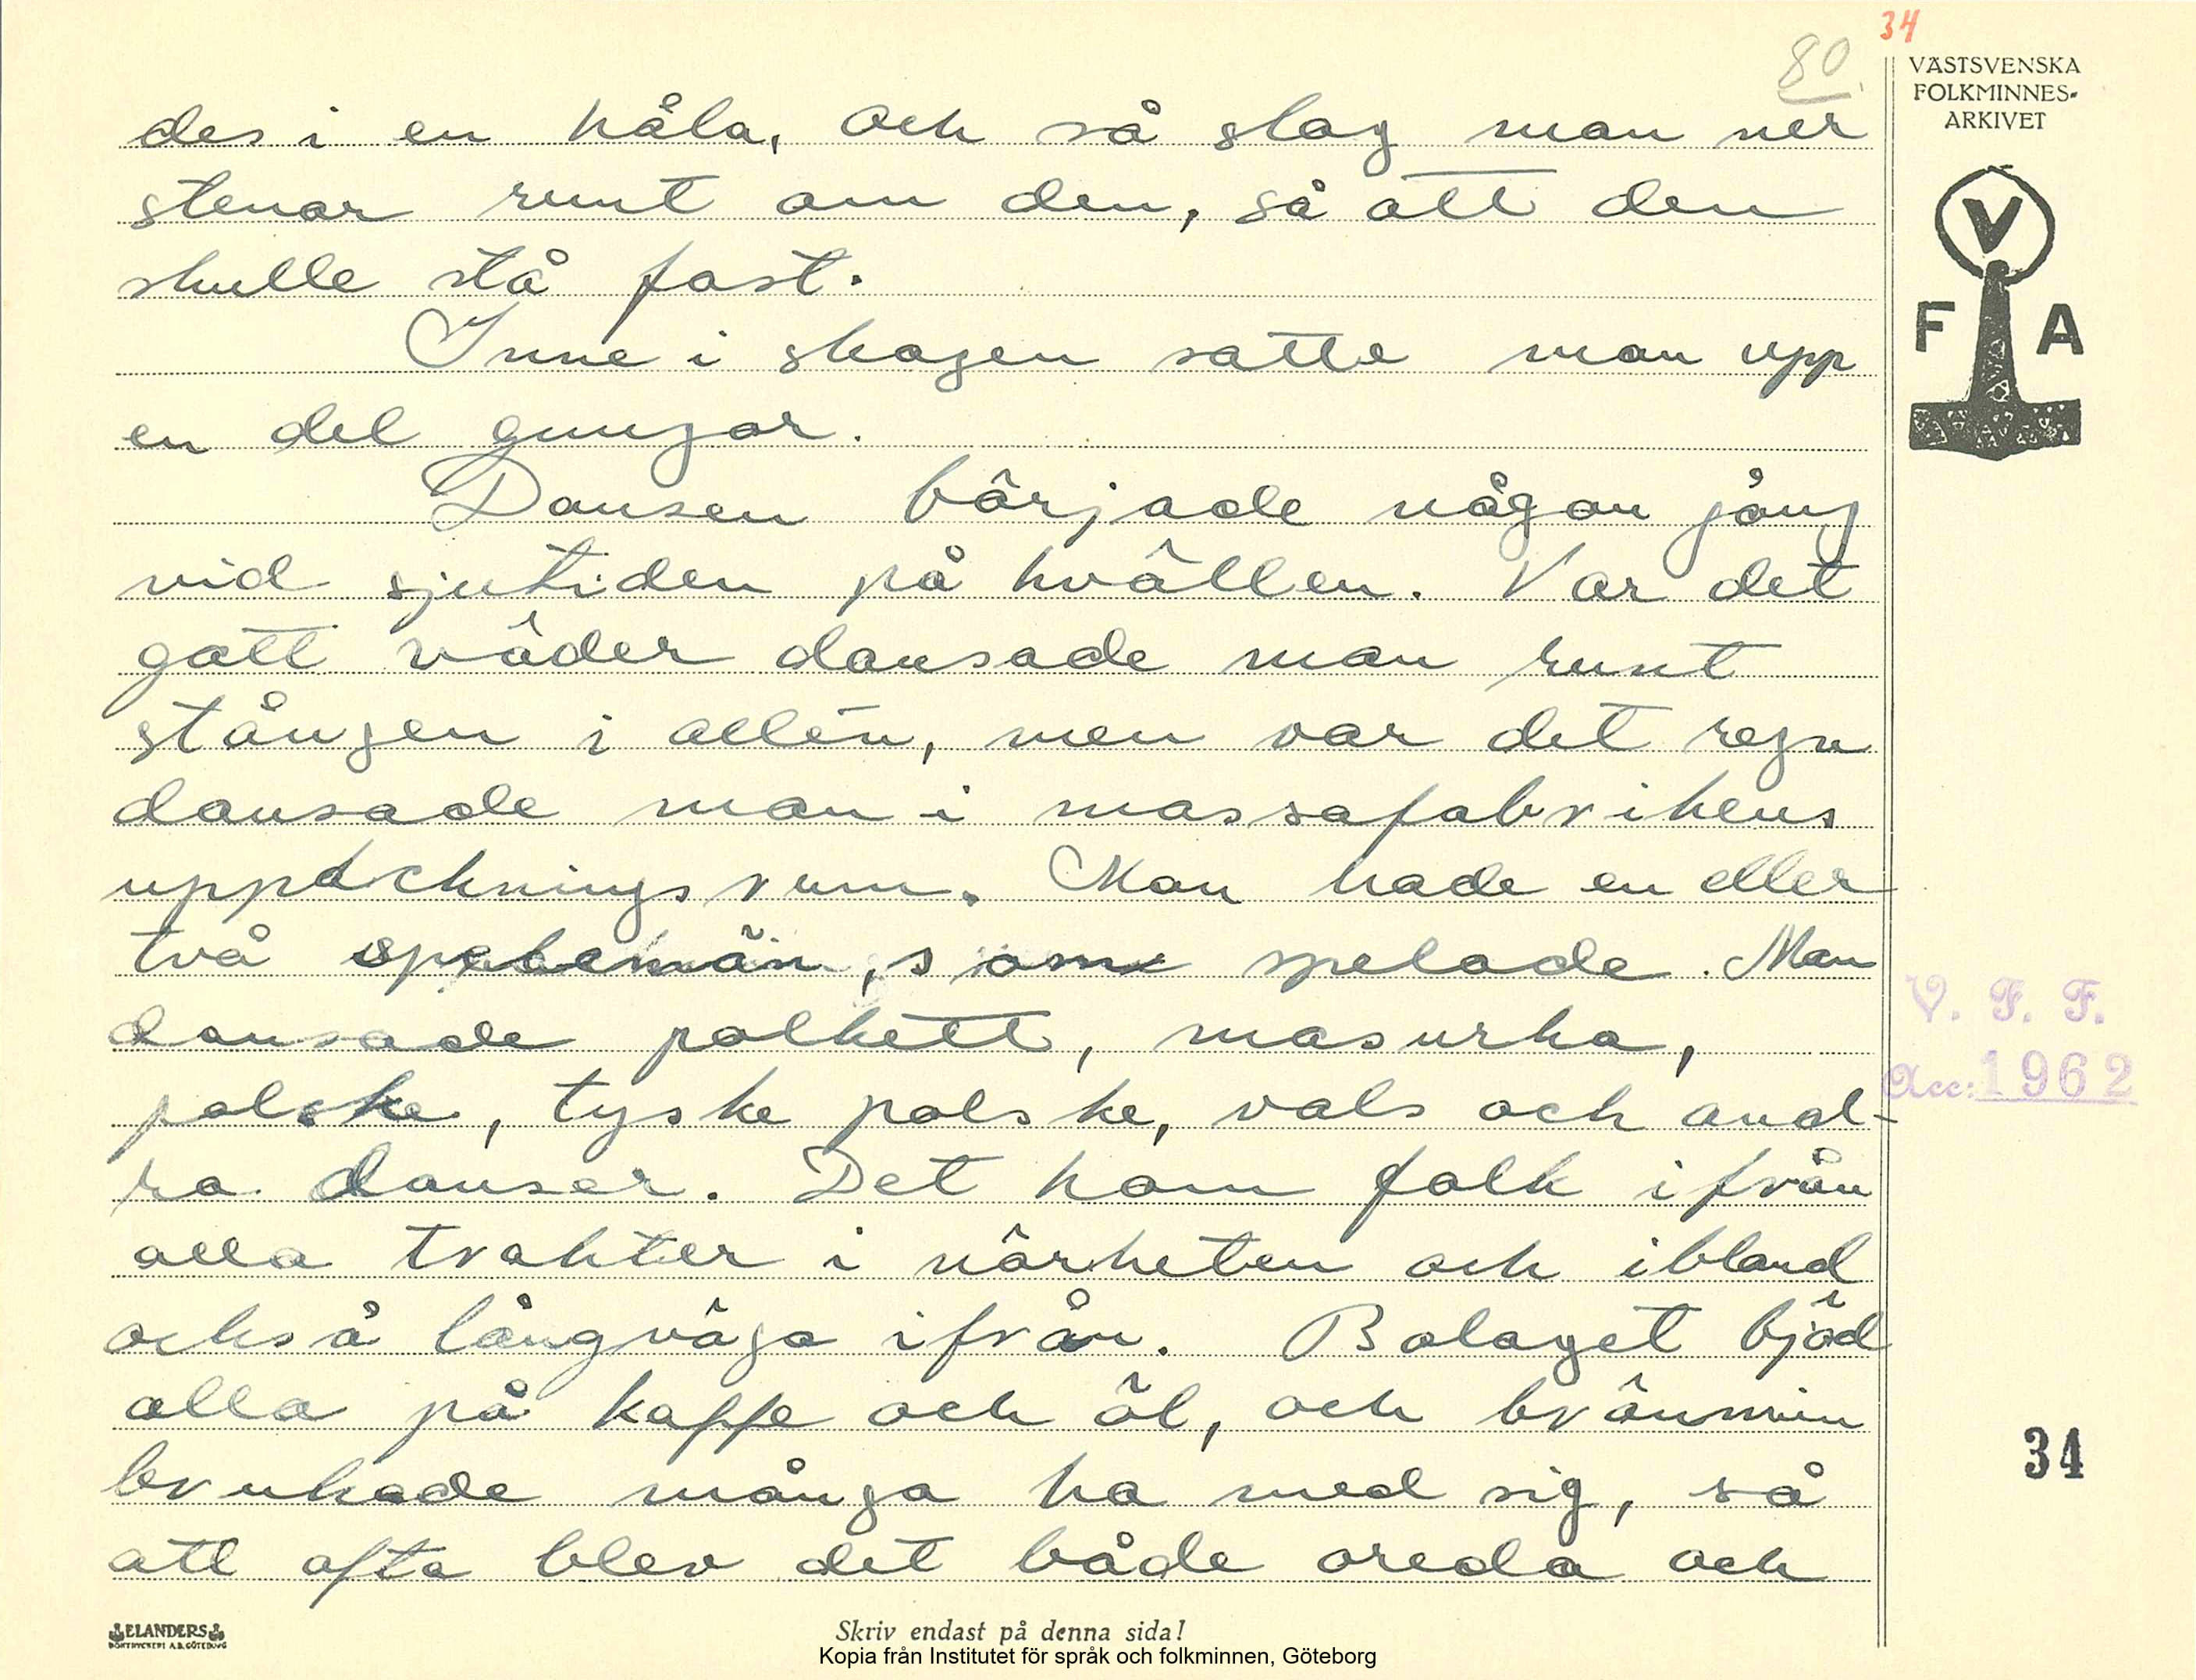 34
80.
VÄSTSVENSKA
FOLKMINNES-
ARKIVET
V
F A
des i en håla, och så slog man ner
stenar runt om den, så att den
skulle stå fast.
Inne i skogen satte man upp
en del gungor.
Dansen började någon gång
vid sjutiden på kvällen. Var det
gott väder dansade man runt
stången i allén, men var det regn
dansade man i massafabrikens
uppackningsrum. Man hade en eller
två spelemän, som spelade. Man
dansade polkett, masurka,
polske, tyske polske, vals och and-
ra danser. Det kom folk ifrån
alla trakter i närheten och ibland
också långväga ifrån. Bolaget bjöd
alla på kaffe och öl, och brännvin
brukade många ha med sig, så
att ofta blev det både oreda och
V. F. F.
Acc: 1962
34
ELANDERS
BOKTRYCKERI A.B. GÖTEBORG
Skriv endast på denna sida!
Kopia från Institutet för språk och folkminnen, Göteborg